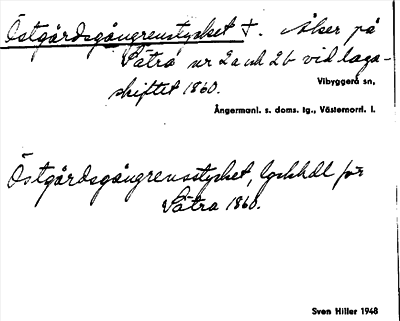 Östgårdsgångrensstycket †. Åker på
Sätra nr 2a och 2b vid laga
skiftet 1860.
Vibyggerå sn,
Ångermanl. s. doms. tg., Västernorrl. l.
Östgårdsgångrensstycket, lgskhdl för
Sätra 1860.
Sven Hiller 1948